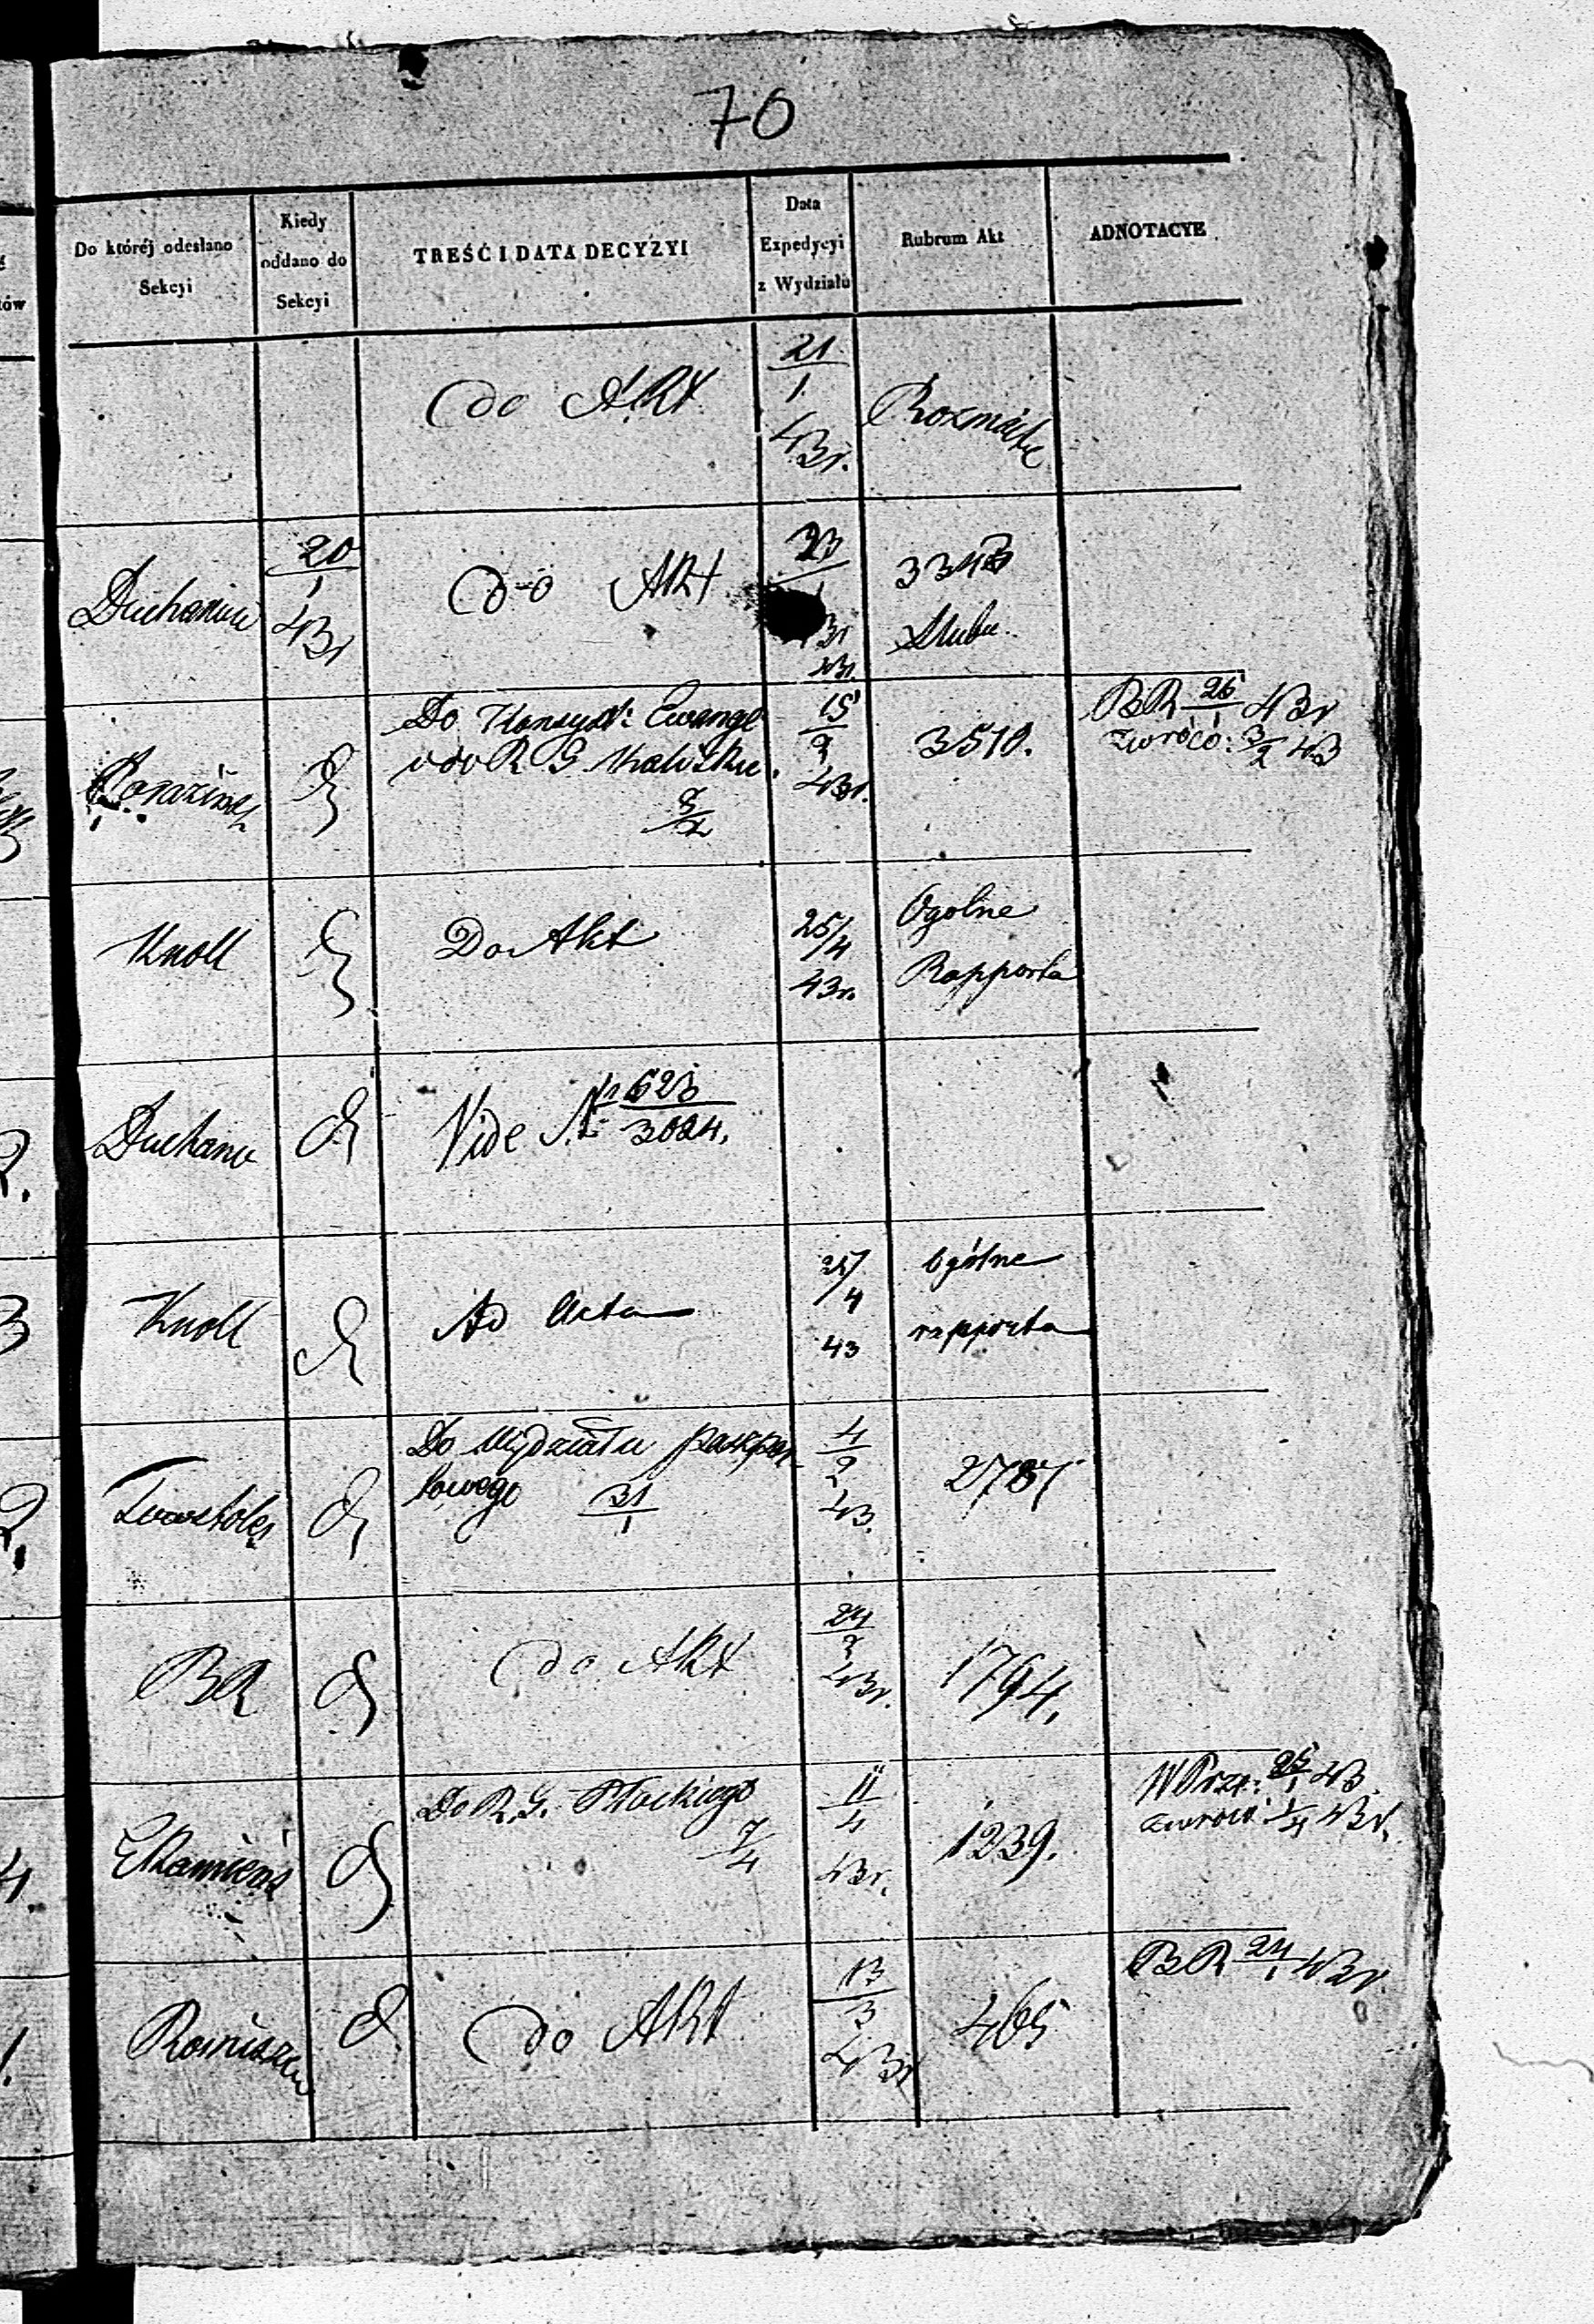 70
Do któréj odesłano
Sekcyi
Kiedy
oddano do
Sekcyi
TREŚĆ I DATA DECYZYI
Data
Expedycyi
z Wydziału
Rubrum Akt
ADNOTACYE
do Akt
21
1
43r.
Rozmaite
20
1
43r
do Akt
23
43r
334
Do Konsyst: Ewang
i do R G Kaliskie
3
2
15
2
43r.
3510.
BR 26/1 43r
zwróco: 3/2 43
Knoll
Do Akt
25/4
43r.
Ogolne
Rapporta
Vide № 623
3024.
Knoll
Ad Acta
25/
4
43
ogólne
rapporta
Do Wydziału paszpor
towego 31
1
4
2
43.
2787
BR
do Akt
24
2
43r.
1794.
Do R. G. Płockiego
7
4
11
4
43r.
1239.
W Prze: 25/1 43
zwróco: 1/4 43r.
do Akt
13
3
43r
465
BR 24/1 43r.